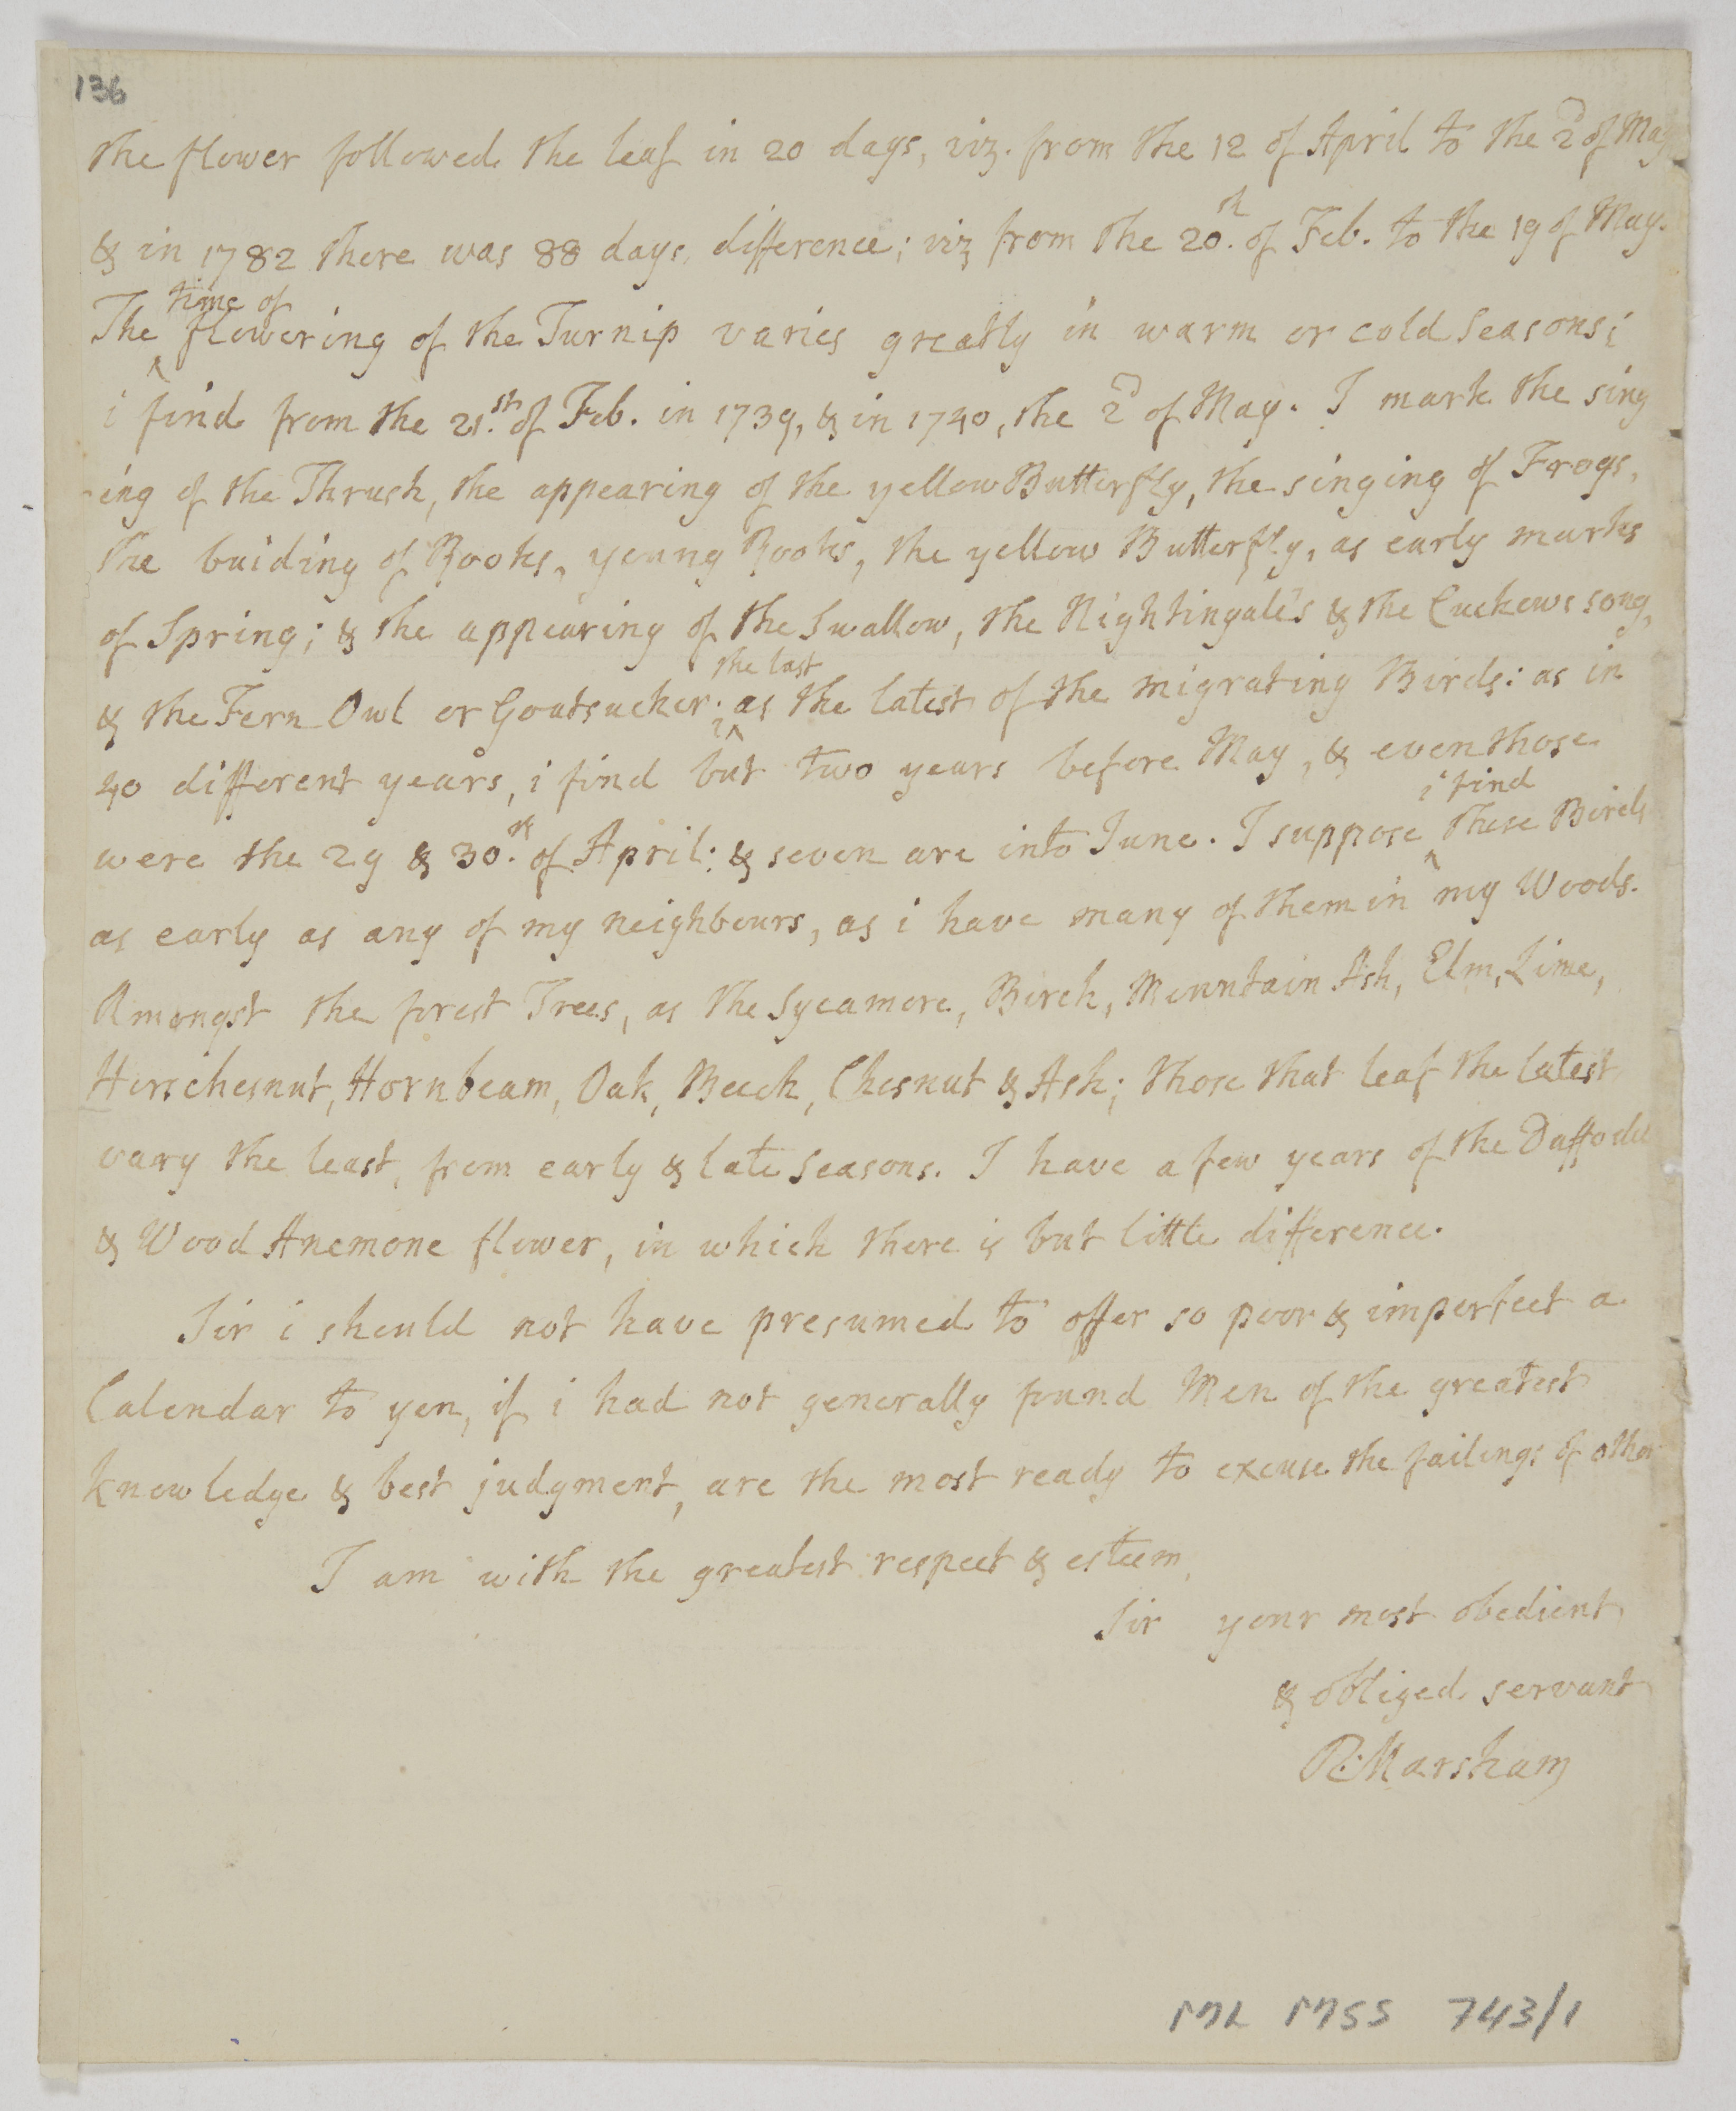 136
the flower followed the leaf in 20 days, viz. from the 12 of April to the 2d of May
& in 1782 there was 88 days difference; viz from the 20.th of Feb. to the 19 of May.
The time of flowering of the Turnip varies greatly in warm or cold Seasons;
i find from the 21.st of Feb. in 1739, & in 1740, the 2d of May. I mark the sing
ing of the Thrush, the appearing of the yellow Butterfly, the singing of Frogs,
the buiding of Rooks, young Rooks, the yellow Butterfly, as early marks
of Spring; & the appearing of the Swallow, the Nightingale's & the Cuckows song,
& the Fern Owl or Goatsucker; the last as the latest of the migrating Birds: as in
40 different years, i find but two years before May, & even those
were the 29 & 30.th of April: & seven are into June. I suppose i find these Birds
as early as any of my neighbours, as i have many of them in my Woods.
Amongst the forest Trees, as the Sycamore, Birch, Mountain Ash, Elm, Lime,
Horschesnut, Hornbeam, Oak, Beech, Chesnut & Ash; those that leaf the latest
vary the least, from early & late Seasons. I have a few years of the Daffodil
& Wood Anemone flower, in which there is but little difference.
Sir i should not have presumed to offer so poor & imperfect a
Calendar to you, if i had not generally found Men of the greatest
knowledge & best judgment, are the most ready to excuse the failings of other
I am with the greatest respect & esteem,
Sir your most obedient
& obliged servant
R: Marsham
ML MSS 743/1